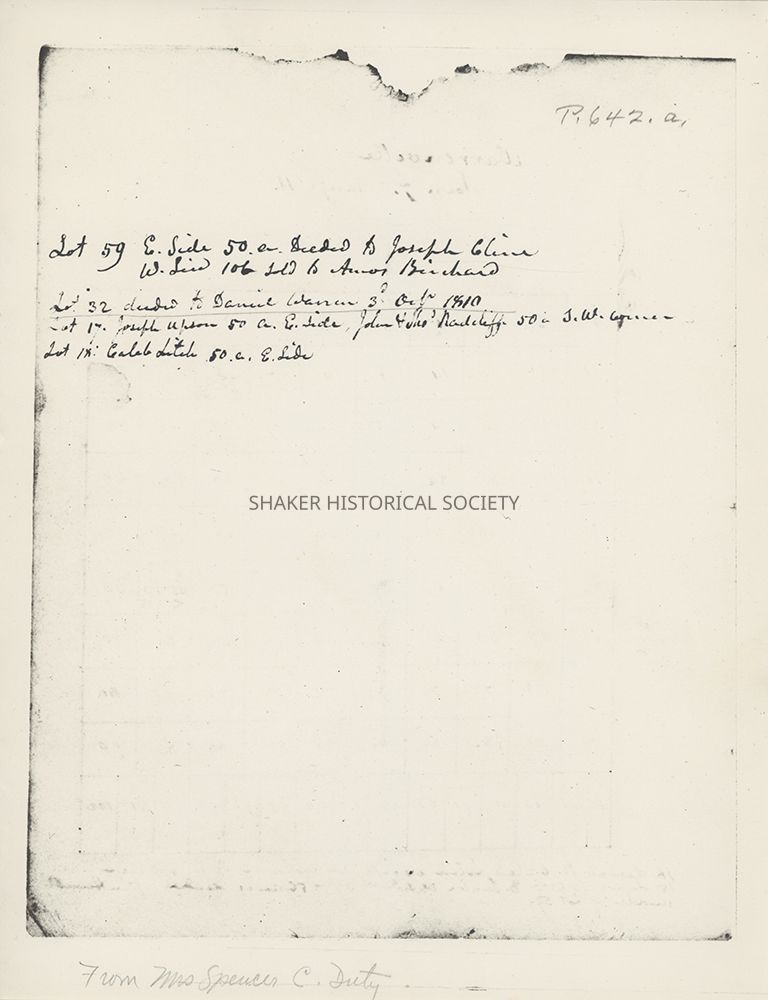 P. 642. a.
Lot 59 E. Side 50. a. Deeded to Joseph Cline
W. Side 106 sold to Amos Birchard
Lot 32 deeded to Daniel Warren 3d Octr 1810
Lot 17. Joseph Upson 50 a. E. Side, John & Radcliff 50 a S. W. corner
Lot 18: Caleb Litch 50. a. E. Side
SHAKER HISTORICAL SOCIETY
From Mrs Spencer C. Duty.